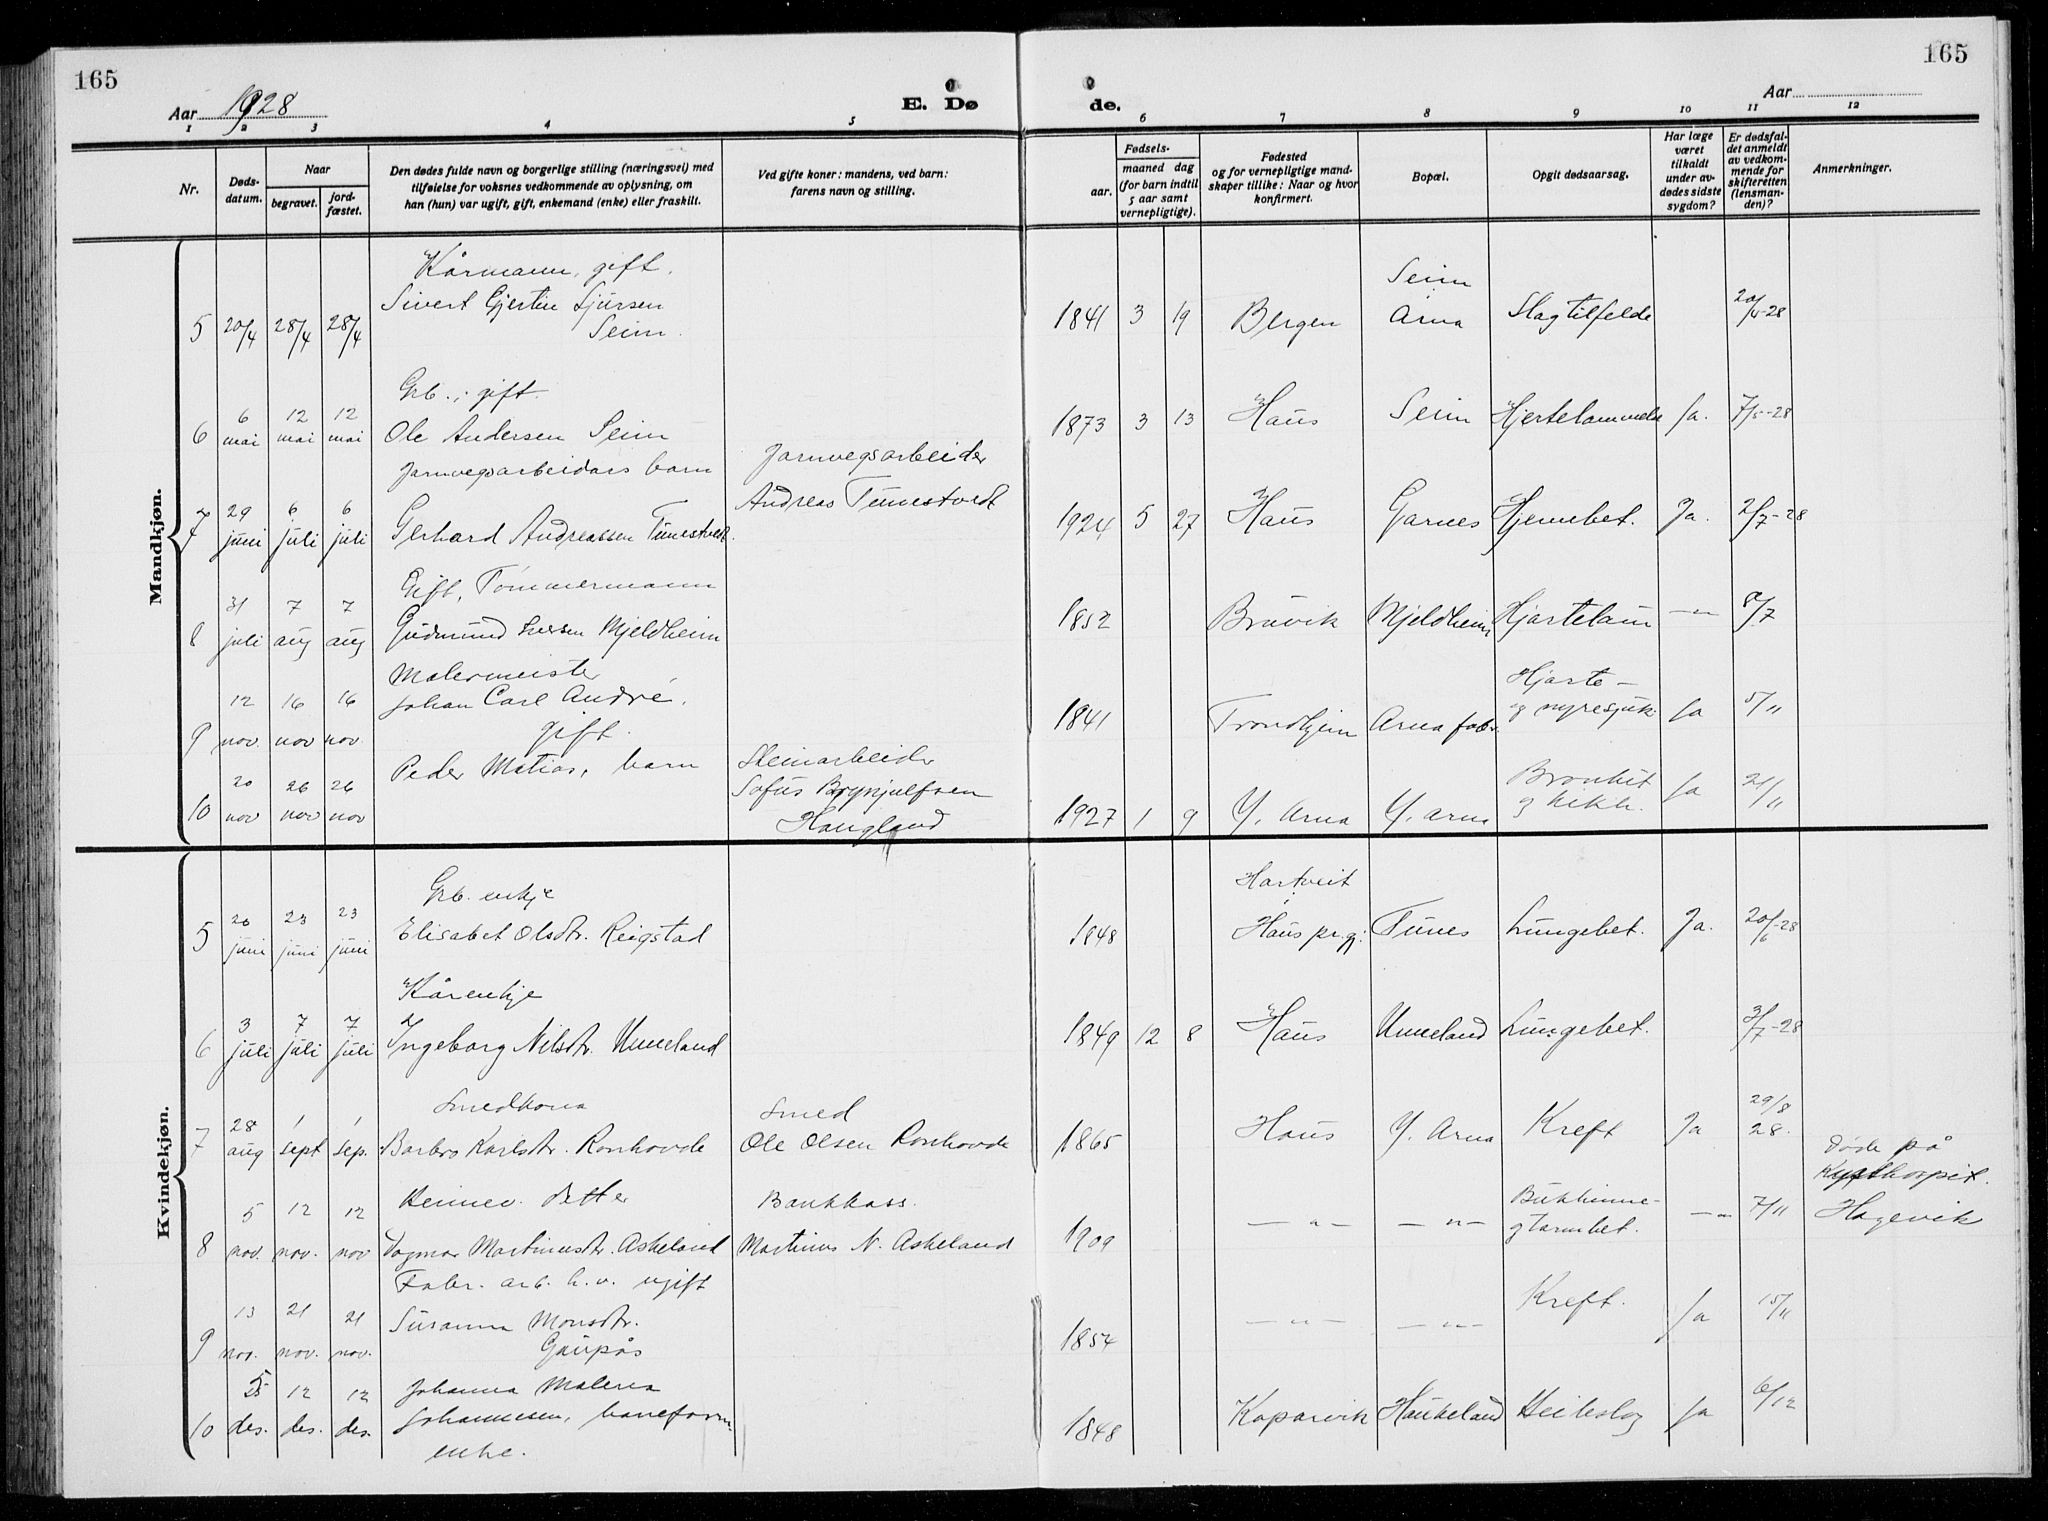 165
165
Aar 1928
E. Dø
de.
Aar
1 2 3 4 5 6 7 8 9 10 11 12
Nr.
Døds-
datum.
Naar
begravet.
jord-
fæstet.
Den dødes fulde navn og borgerlige stilling (næringsvei) med
tilføielse for voksnes vedkommende av oplysning, om
han (hun) var ugift, gift, enkemand (enke) eller fraskilt.
Ved gifte koner: mandens, ved barn:
farens navn og stilling.
Fødsels-
aar.
maaned dag
(for barn indtil
5 aar samt
vernepligtige).
Fødested
og for vernepligtige mand-
skaper tillike: Naar og hvor
konfirmert.
Bopæl.
Opgit dødsaarsag.
Har læge
været
tilkaldt
under av-
dødes sidste
sygdom?
Er dødsfal-
det anmeldt
av vedkom-
mende for
skifteretten
(lensman-
den)?
Anmerkninger.
Mandkjøn.
Kårmann, gift.
Seim
Sivert Gjertin Sjursen
5 20/4 28/4 28/4 Seim. 1841 3 19 Bergen Arna Slagtilfelde 20/4-28
Grb., gift.
6 12 12
6 mai mai mai Ole Andersen Seim 1873 3 13 Haus Seim Hjertelammelse Ja. 7/5-28
Jarnvegsarbeidars barn Jarnvegsarbeider
29 6 6 Andreas Tunestvedt
7 juni juli juli Gerhard Andreassen Tunestvedt. 1924 5 27 Haus Garnes Hjernebet. Ja. 2/7-28
Gift, Tømmermann
31 7 7
8 juli aug aug Gudmund Iversen Mjeldheim 1852 Bruvik Mjeldheim Hjartelam —"— 8/7
Malermeister
12 16 16 Johan Carl André, Hjarte-
9 nov. nov nov. gift. 1841 Trondhjem Arna fabr. og nyresjuk Ja 5/11
20 26 26 Peder Matias, barn Steinarbeider
Sofus Brynjulfsen Bronkit
10 nov nov nov Haugland 1927 1 9 Y. Arna Y. Arna og kikh. Ja 21/11
Kvindekjøn.
Grb. enkje
20 23 23 Hartveit
5 juni juni juni Elisabet Olsdtr. Reigstad 1848 Haus pr.gj. Tunes Lungebet. Ja. 20/6-28
Kårenkje
3 7 7
6 juli juli juli Ingeborg Nilsdtr. Unneland 1849 12 8 Haus Unneland Lungebet. 3/7-28
Smedkona Smed
28 1 1 29/8
7 aug sept sep. Barbro Karlsdtr. Ronhovde Ole Olsen Ronhovde 1865 Haus Y. Arna Kreft Ja 28.
Døde på
Kysthospit.
Hagevik
Heimev. dotter Bankkass. Bukhinne-
5 12 12
8 nov. nov. nov Dagmar Martinusdtr. Askeland Martinus N. Askeland 1909 —"— —"— og tarmbet. —"— 7/11
Fabr. arb. h.v. ugift
13 21 21 Susanna Monsdtr.
9 nov. nov. nov. Gaupås 1854 —"— —"— Kreft. Ja 15/11
5 12 12 Johanna Malena
10 des. des. des. Johannesen, baneform. 1848 Kaparvik Haukeland Heileslag Ja 6/12
enke.